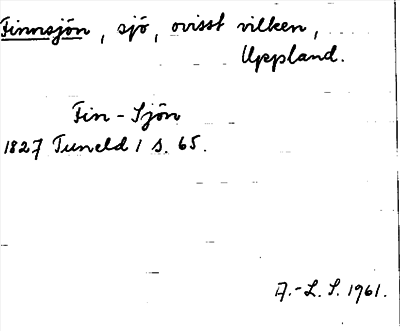 Finnsjön, sjö, ovisst vilken,
Uppland.
Fin-Sjön
1827 Tuneld 1 s. 65.
A.-L. S. 1961.